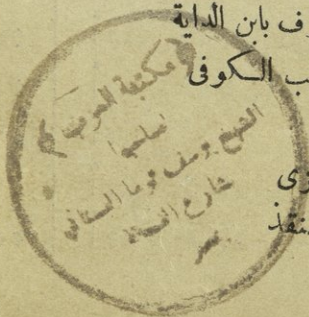 ف بابن الداية
ب الكوفى
﴿ مكتبة العرب ﴾
لصاحبها
الشيخ يوسف توما البستانى
شارع الفجالة
بمصر
زى
نقذ